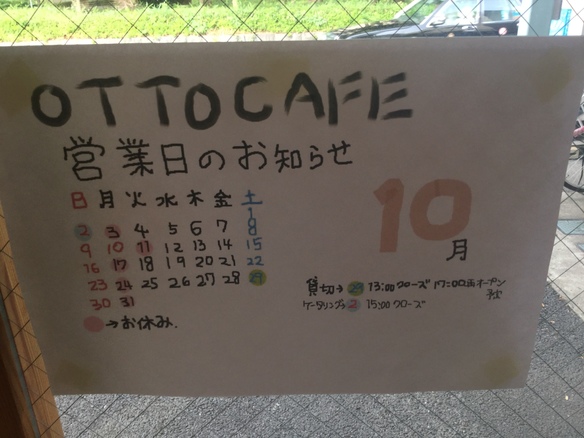 OTTOCAFE
営業日のお知らせ
10月
日 月 火 水 木 金 土
1
2 3 4 5 6 7 8
9 10 11 12 13 14 15
16 17 18 19 20 21 22
23 24 25 26 27 28 29
30 31
→お休み.
貸切→29 13:00クローズ 17:00再オープン
予定
ケータリング→2 15:00クローズ